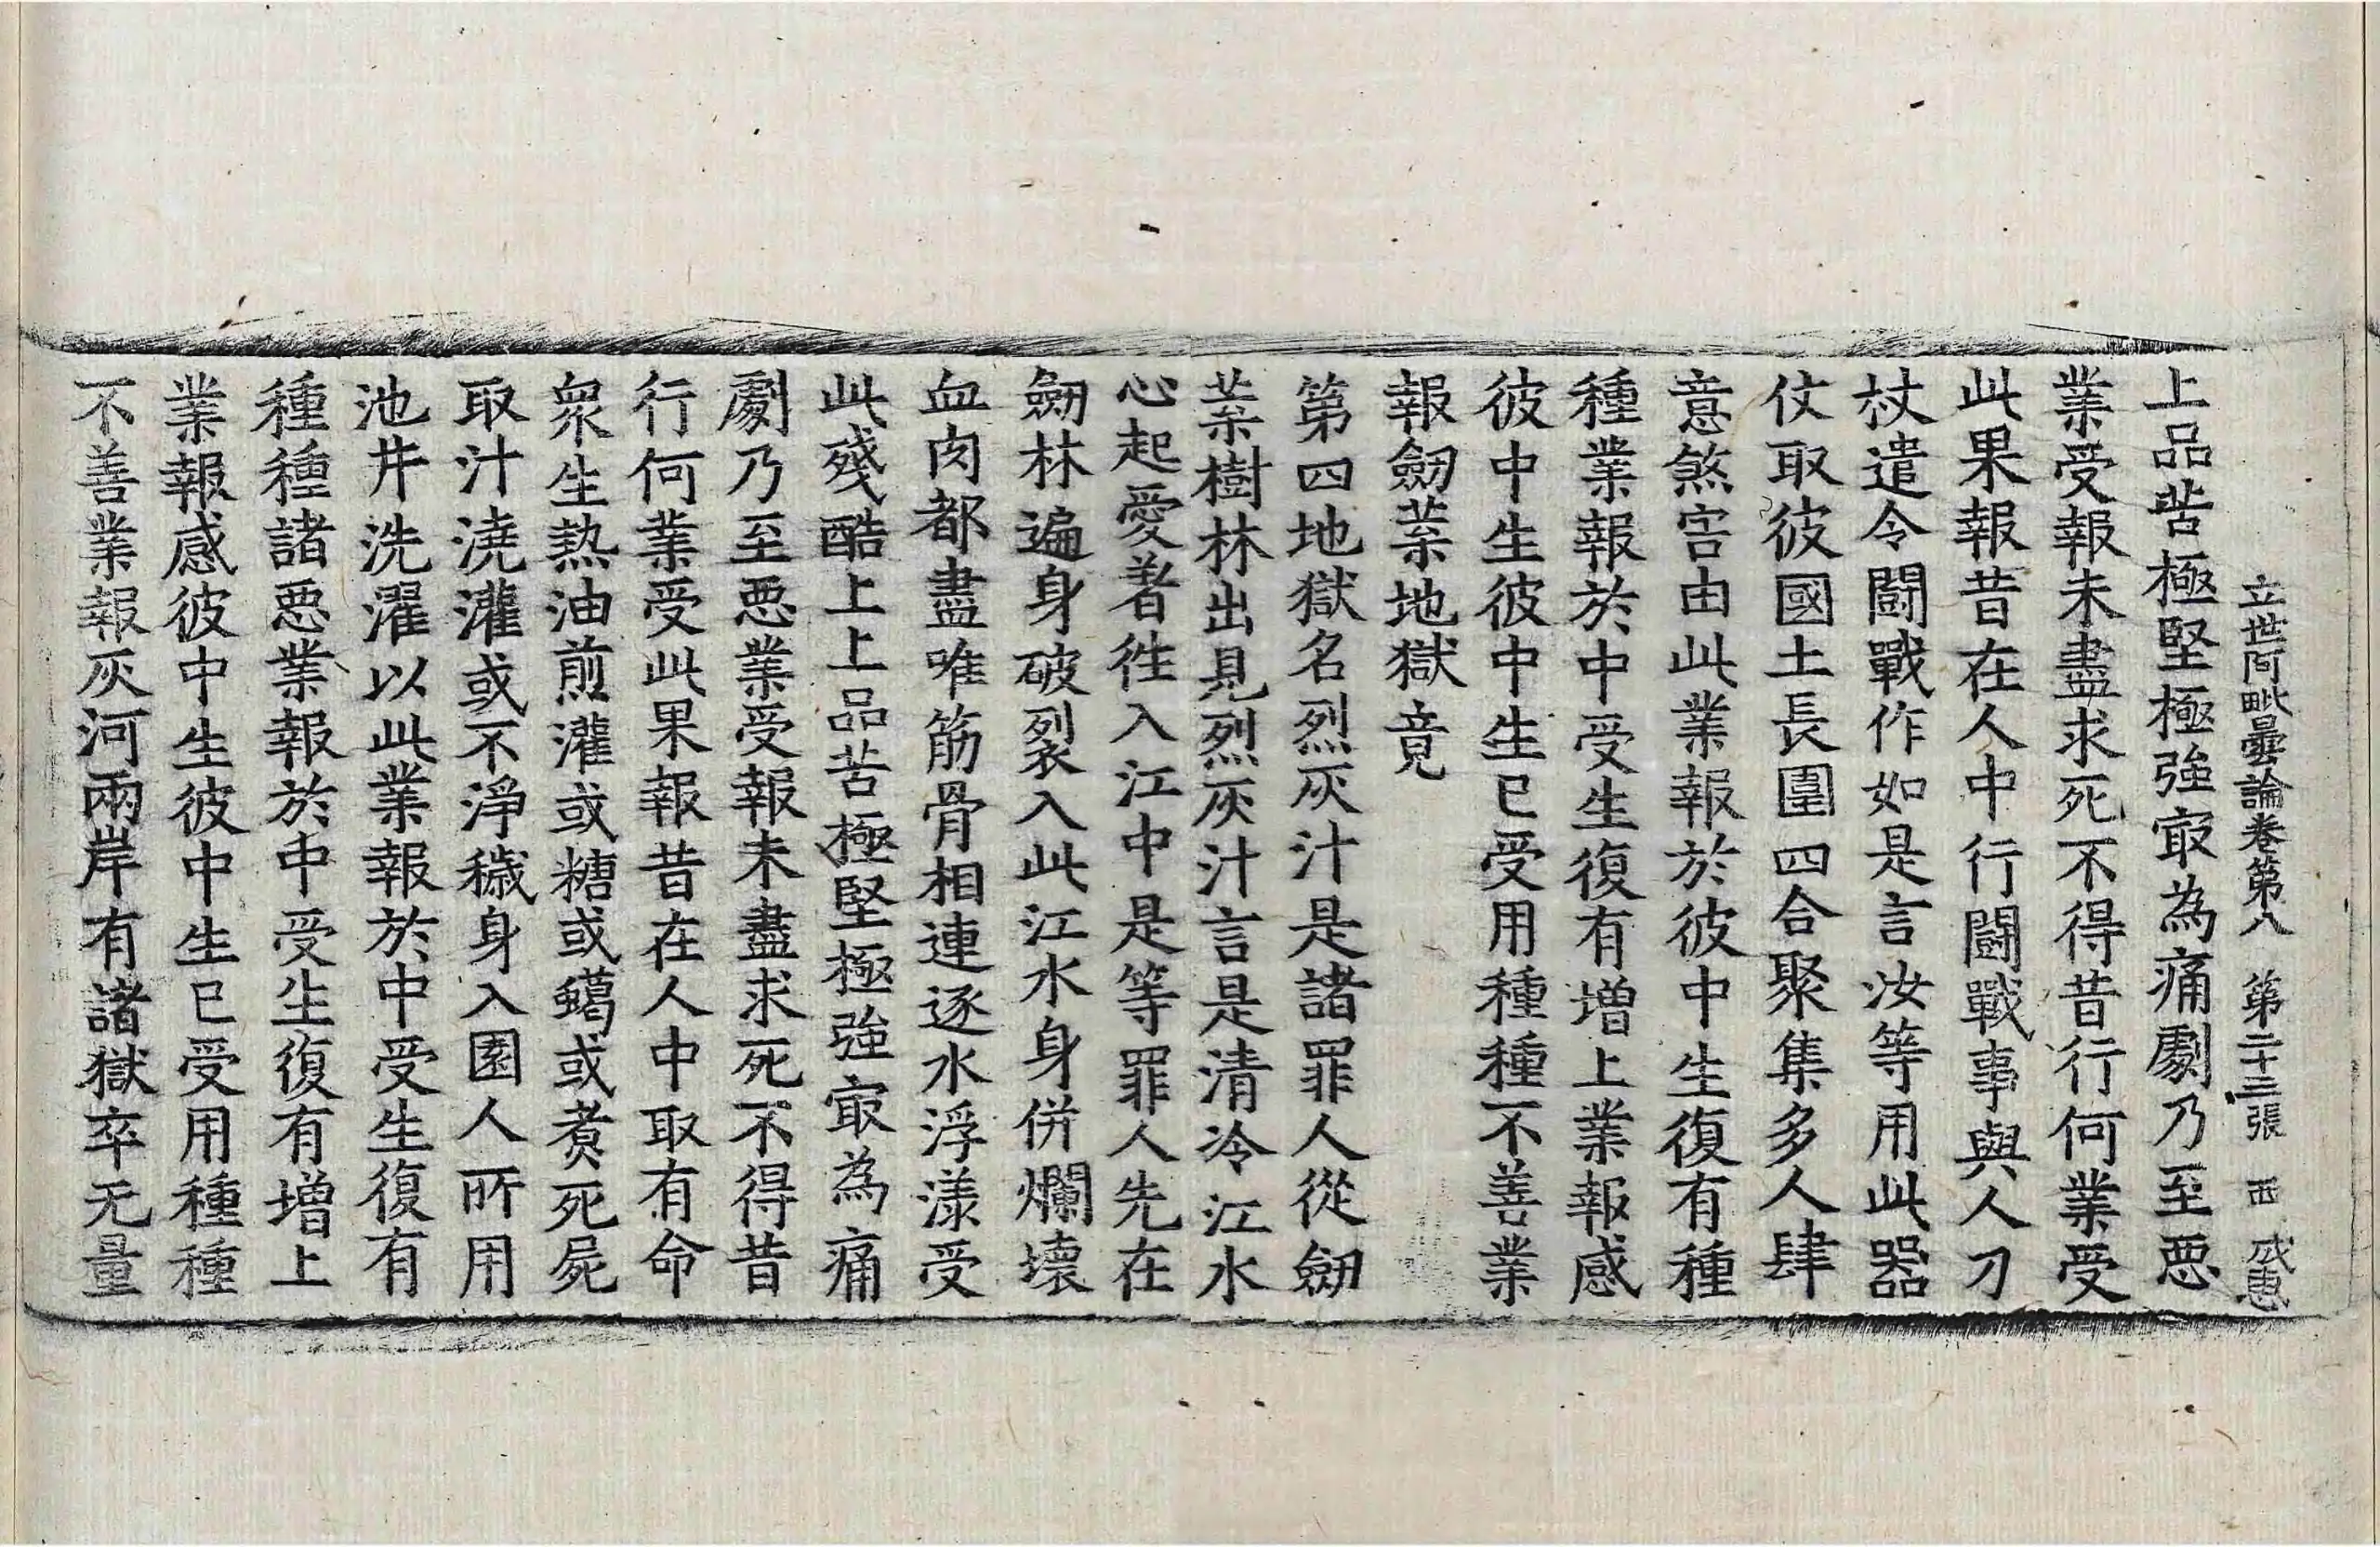 立世阿毗曇論卷第八 第二十三張 西 戒惠
上品苦極堅極強㝡為痛劇乃至惡
業受報未盡求死不得昔行何業受
此果報昔在人中行鬪戰事與人刀
杖遣令鬪戰作如是言汝等用此器
仗取彼國土長圍四合聚集多人肆
意煞害由此業報於彼中生復有種
種業報於中受生復有增上業報感
彼中生彼中生已受用種種不善業
報劒葉地獄竟
第四地獄名烈灰汁是諸罪人從劒
葉樹林出見烈灰汁言是清冷江水
心起愛著徃入江中是等罪人先在
劒林遍身破裂入此江水身併爛壞
血肉都盡唯筋骨相連逐水浮漾受
此殘酷上上品苦極堅極強㝡為痛
劇乃至惡業受報未盡求死不得昔
行何業受此果報昔在人中取有命
衆生熱油煎灌或糖或蠟或煑死屍
取汁澆灌或不淨穢身入園人所用
池井洗濯以此業報於中受生復有
種種諸惡業報於中受生復有增上
業報感彼中生彼中生已受用種種
不善業報灰河兩岸有諸獄卒无量